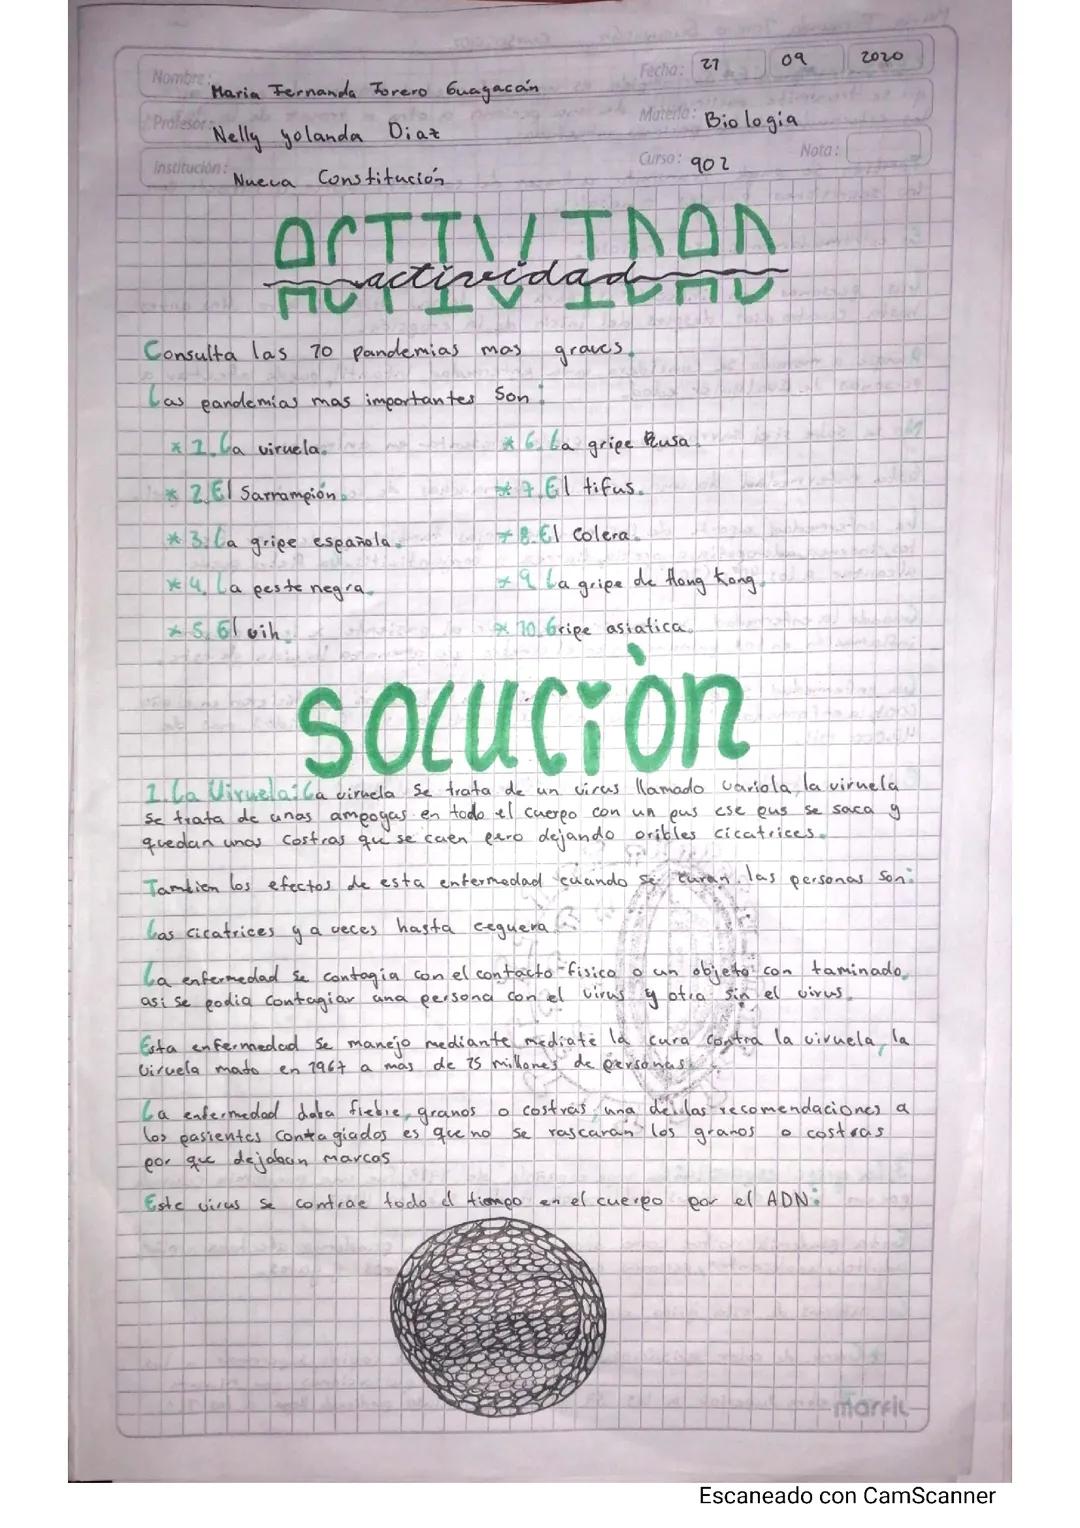 Nombre: Maria Fernanda Forero Guagacán Fecha: 27 09 2020
Profesor: Nelly yolanda Diaz Materia: Biologia
Institución: Nueva Constitución Curso: 902 Nota:
ACTIVIDAD
actividad
Consulta las 10 pandemias mas graves.
Las pandemias mas importantes Son:
* 1. La viruela. * 6. La gripe Rusa.
* 2. El Sarrampión. * 7. El tifus.
* 3. La gripe española. * 8. El Colera.
* 4. La peste negra. * 9. La gripe de Hong Kong.
* 5. El vih. * 10. Gripe asiatica.
SOLUCIÒN
1. La Viruela: La viruela Se trata de un virus llamado variola, la viruela
se trata de unas ampogas en todo el cuerpo con un pus ese pus se saca y
quedan unas costras que se caen pero dejando oribles cicatrices.
Tambien los efectos de esta enfermedad cuando se curan las personas son:
Las cicatrices y a veces hasta ceguera.
La enfermedad se contagia con el contacto fisico o un objeto con taminado,
asi se podia contagiar una persona con el virus y otra sin el virus.
Esta enfermedad se manejo mediante mediate la cura contra la viruela, la
viruela mato en 1967 a mas de 15 millones de personas.
La enfermedad daba fiebre, granos o costras, una de las recomendaciones a
los pasientes contagiados es que no se rascaran los granos o costras
por que dejaban marcas
Este virus se contrae todo el tiempo en el cuerpo por el ADN:
marfil
Escaneado con CamScanner